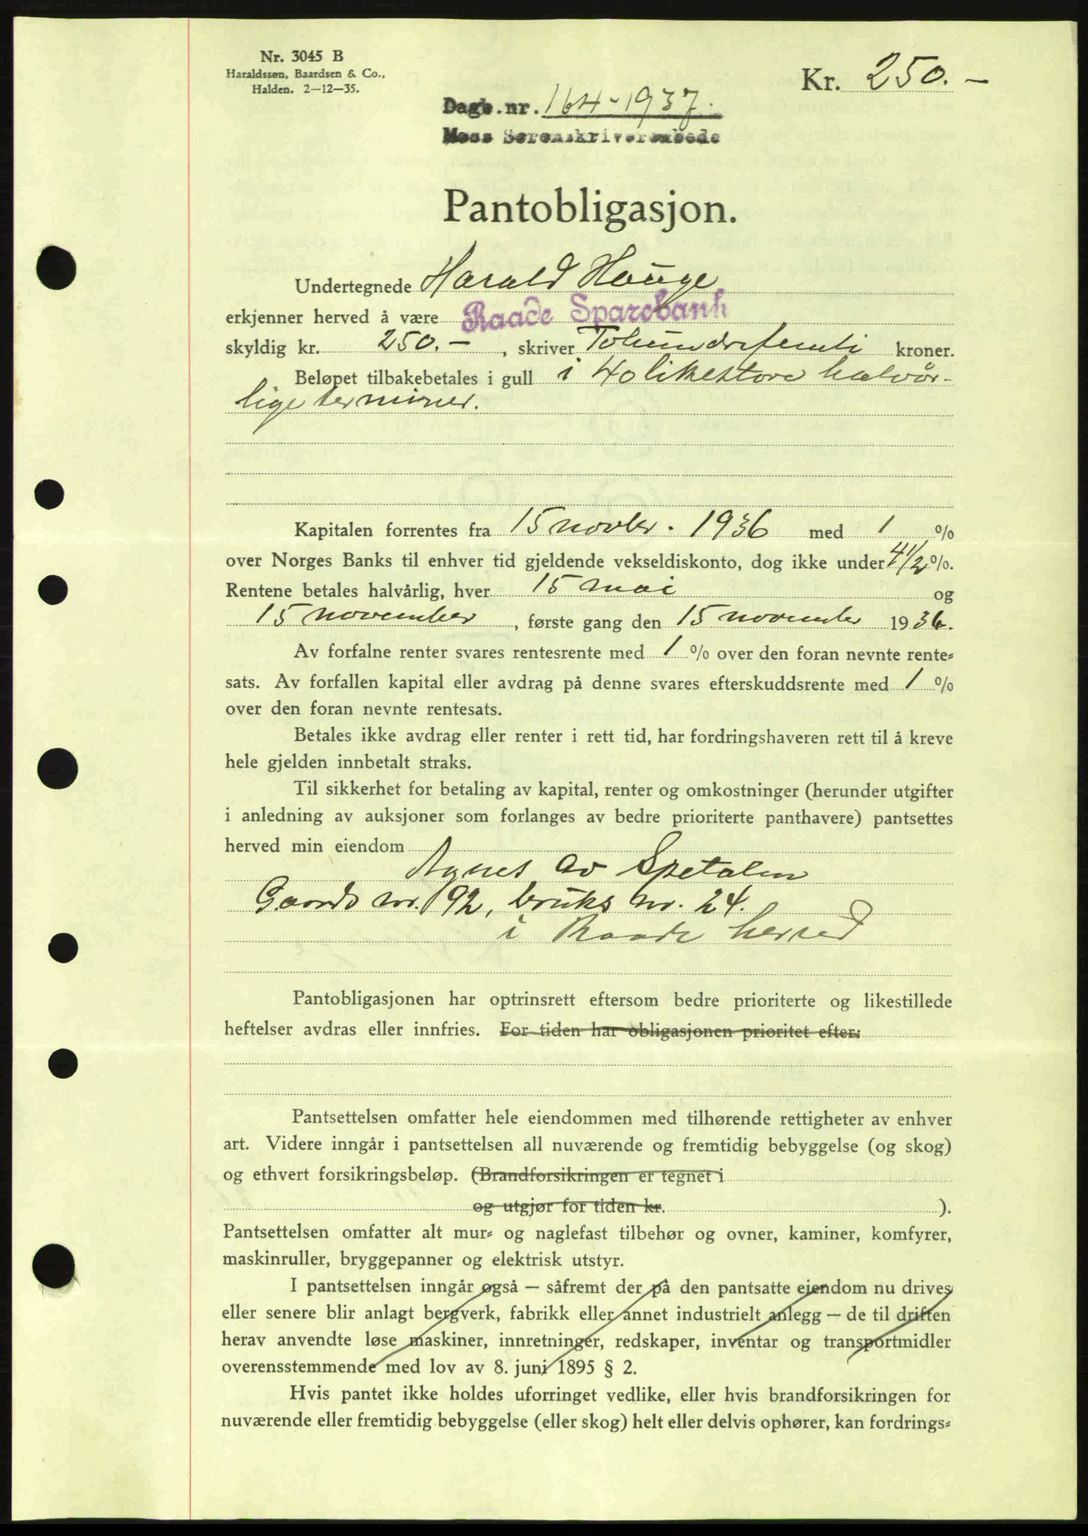 Nr. 3045 B
Haraldssøn, Baardsen & Co.,
Halden. 2—12—35.
Kr. 250.—
Dagb.nr. 164-1937.
Moss Sorenskriverembede
Pantobligasjon.
Undertegnede Harald Hauge
erkjenner herved å være Raade Sparebank
skyldig kr. 250.— , skriver Tohundrefemti kroner.
Beløpet tilbakebetales i gull i 40 likestore halvår-
lige terminer.
Kapitalen forrentes fra 15 novbr. 1936 med 1 %
over Norges Banks til enhver tid gjeldende vekseldiskonto, dog ikke under 4 1/2 %.
Rentene betales halvårlig, hver 15 mai og
15 november , første gang den 15 november 1936.
Av forfalne renter svares rentesrente med 1 % over den foran nevnte rente-
sats. Av forfallen kapital eller avdrag på denne svares efterskuddsrente med 1 %
over den foran nevnte rentesats.
Betales ikke avdrag eller renter i rett tid, har fordringshaveren rett til å kreve
hele gjelden innbetalt straks.
Til sikkerhet for betaling av kapital, renter og omkostninger (herunder utgifter
i anledning av auksjoner som forlanges av bedre prioriterte panthavere) pantsettes
herved min eiendom
Agnes av Spetalen
Gaards nr. 92, bruks nr. 24.
i Raade herred
Pantobligasjonen har optrinsrett eftersom bedre prioriterte og likestillede
heftelser avdras eller innfries. For tiden har obligasjonen prioritet efter:
Pantsettelsen omfatter hele eiendommen med tilhørende rettigheter av enhver
art. Videre inngår i pantsettelsen all nuværende og fremtidig bebyggelse (og skog)
og ethvert forsikringsbeløp. (Brandforsikringen er tegnet i
og utgjør for tiden kr. ).
Pantsettelsen omfatter alt mur- og naglefast tilbehør og ovner, kaminer, komfyrer,
maskinruller, bryggepanner og elektrisk utstyr.
I pantsettelsen inngår også — såfremt der på den pantsatte eiendom nu drives
eller senere blir anlagt bergverk, fabrikk eller annet industrielt anlegg — de til driften
herav anvendte løse maskiner, innretninger, redskaper, inventar og transportmidler
overensstemmende med lov av 8. juni 1895 § 2.
Hvis pantet ikke holdes uforringet vedlike, eller hvis brandforsikringen for
nuværende eller fremtidig bebyggelse (eller skog) helt eller delvis ophører, kan fordrings-